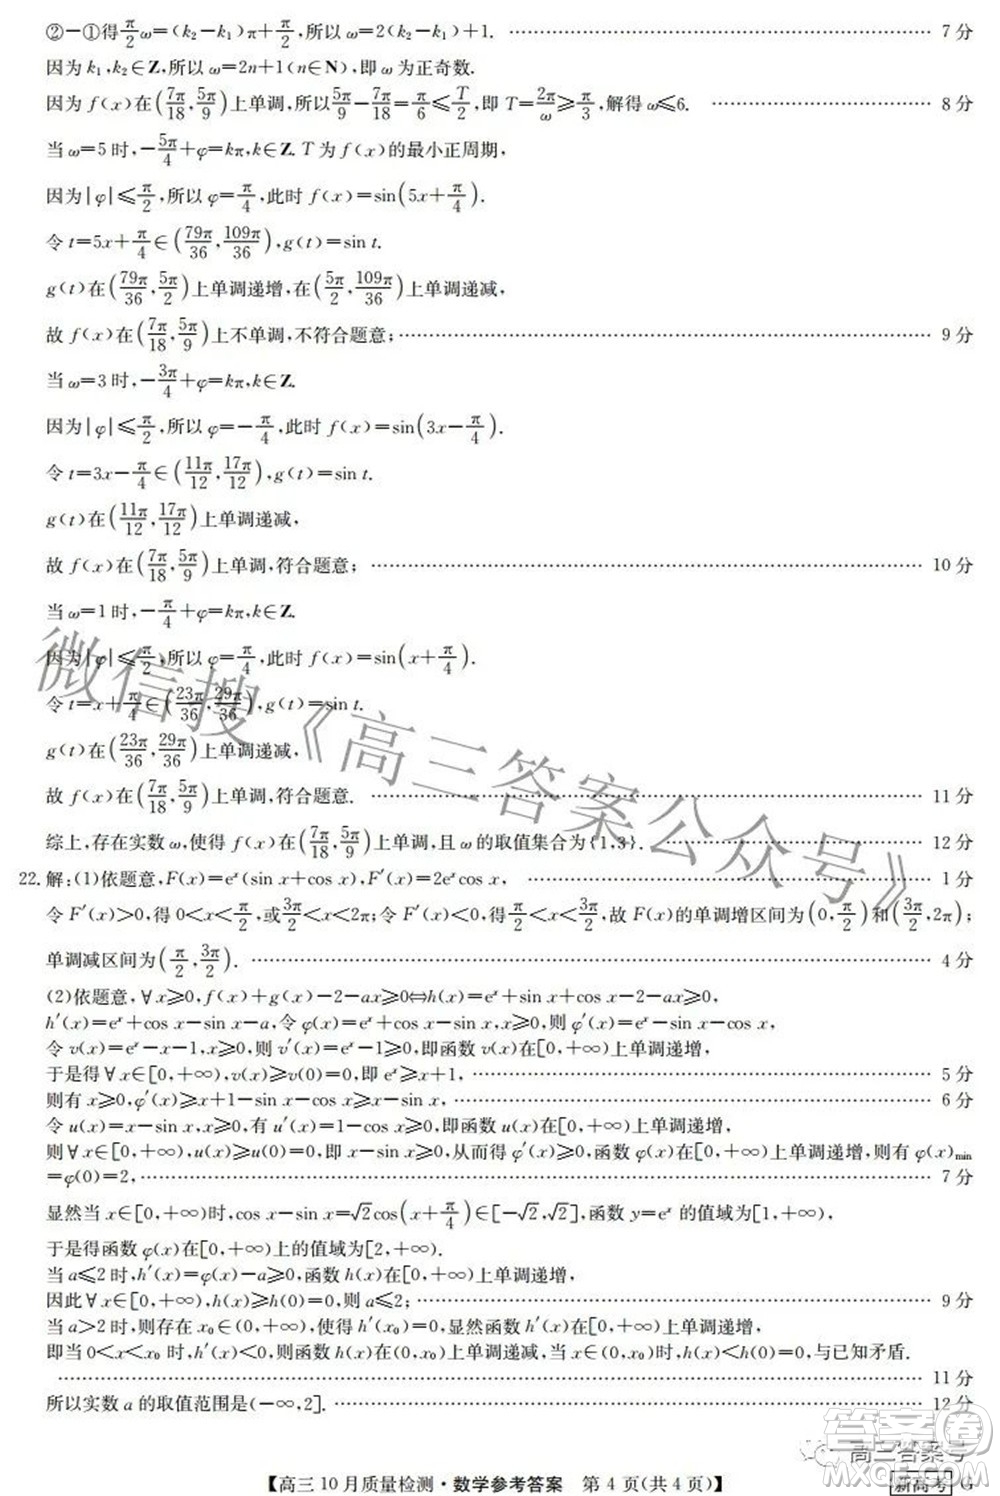 ②－①得π/2 ω=(k₂－k₁)π+π/2,所以ω=2(k₂－k₁)+1. …… 7分
因为k₁,k₂∈Z,所以ω=2n+1(n∈N),即ω为正奇数.
因为f(x)在(7π/18,5π/9)上单调,所以5π/9－7π/18=π/6≤T/2,即T=2π/ω≥π/3,解得ω≤6. …… 8分
当ω=5时,－5π/4+φ=kπ,k∈Z.T为f(x)的最小正周期,
因为|φ|≤π/2,所以φ=π/4,此时f(x)=sin(5x+π/4).
令t=5x+π/4∈(79π/36,109π/36),g(t)=sin t.
g(t)在(79π/36,5π/2)上单调递增,在(5π/2,109π/36)上单调递减,
故f(x)在(7π/18,5π/9)上不单调,不符合题意; …… 9分
当ω=3时,－3π/4+φ=kπ,k∈Z.
因为|φ|≤π/2,所以φ=－π/4,此时f(x)=sin(3x－π/4).
令t=3x－π/4∈(11π/12,17π/12),g(t)=sin t.
g(t)在(11π/12,17π/12)上单调递减,
故f(x)在(7π/18,5π/9)上单调,符合题意; …… 10分
当ω=1时,－π/4+φ=kπ,k∈Z.
因为|φ|≤π/2,所以φ=π/4,此时f(x)=sin(x+π/4).
令t=x+π/4∈(23π/36,29π/36),g(t)=sin t.
g(t)在(23π/36,29π/36)上单调递减,
故f(x)在(7π/18,5π/9)上单调,符合题意. …… 11分
综上,存在实数ω,使得f(x)在(7π/18,5π/9)上单调,且ω的取值集合为{1,3}. …… 12分
22.解:(1)依题意,F(x)=eˣ(sin x+cos x),F′(x)=2eˣcos x, …… 1分
令F′(x)>0,得0<x<π/2,或3π/2<x<2π;令F′(x)<0,得π/2<x<3π/2,故F(x)的单调增区间为(0,π/2)和(3π/2,2π);
单调减区间为(π/2,3π/2). …… 4分
(2)依题意,∀x≥0,f(x)+g(x)－2－ax≥0⇔h(x)=eˣ+sin x+cos x－2－ax≥0,
h′(x)=eˣ+cos x－sin x－a,令φ(x)=eˣ+cos x－sin x,x≥0,则φ′(x)=eˣ－sin x－cos x,
令v(x)=eˣ－x－1,x≥0,则v′(x)=eˣ－1≥0,即函数v(x)在[0,+∞)上单调递增,
于是得∀x∈[0,+∞),v(x)≥v(0)=0,即eˣ≥x+1, …… 5分
则有x≥0,φ′(x)≥x+1－sin x－cos x≥x－sin x, …… 6分
令u(x)=x－sin x,x≥0,有u′(x)=1－cos x≥0,即函数u(x)在[0,+∞)上单调递增,
则∀x∈[0,+∞),u(x)≥u(0)=0,即x－sin x≥0,从而得φ′(x)≥0,函数φ(x)在[0,+∞)上单调递增,则有φ(x)min
=φ(0)=2, …… 7分
显然当x∈[0,+∞)时,cos x－sin x=√2cos(x+π/4)∈[－√2,√2],函数y=eˣ的值域为[1,+∞),
于是得函数φ(x)在[0,+∞)上的值域为[2,+∞),
当a≤2时,h′(x)=φ(x)－a≥0,函数h(x)在[0,+∞)上单调递增,
因此∀x∈[0,+∞),h(x)≥h(0)=0,则a≤2; …… 9分
当a>2时,则存在x₀∈(0,+∞),使得h′(x₀)=0,显然函数h′(x)在[0,+∞)上单调递增,
即当0<x<x₀时,h′(x)<0,函数h(x)在(0,x₀)上单调递减,当x∈(0,x₀)时,h(x)<h(0)=0,与已知矛盾.
…… 11分
所以实数a的取值范围是(－∞,2]. …… 12分
【高三10月质量检测·数学参考答案 第4页(共4页)】
新高考 G
微信搜《高三答案公众号》
高三答案号
答案圈
MXQE.COM